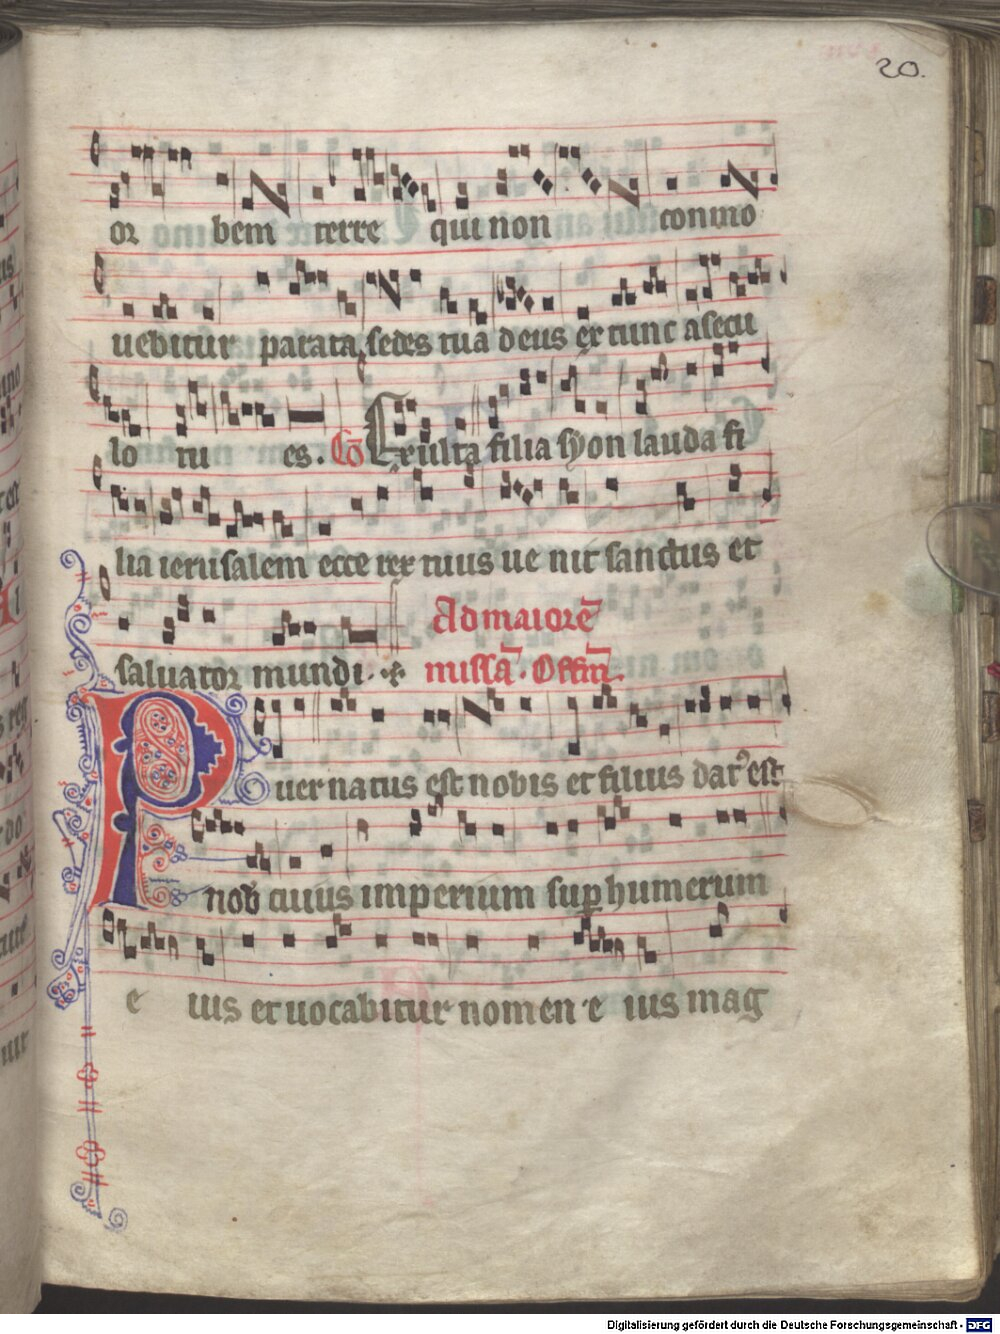 20.
or bem terre qui non conmo
uebitur parata sedes tua deus ex tunc a secu
lo tu es. Cō Exulta filia syon lauda fi
lia ierusalem ecce rex tuus ue nit sanctus et
saluator mundi.
Ad maiorē
missā. Offm̄.
Puer natus est nobis et filius datꝰ est
nob cuius imperium sup humerum
e ius et uocabitur nomen e ius mag
Digitalisierung gefördert durch die Deutsche Forschungsgemeinschaft - DFG